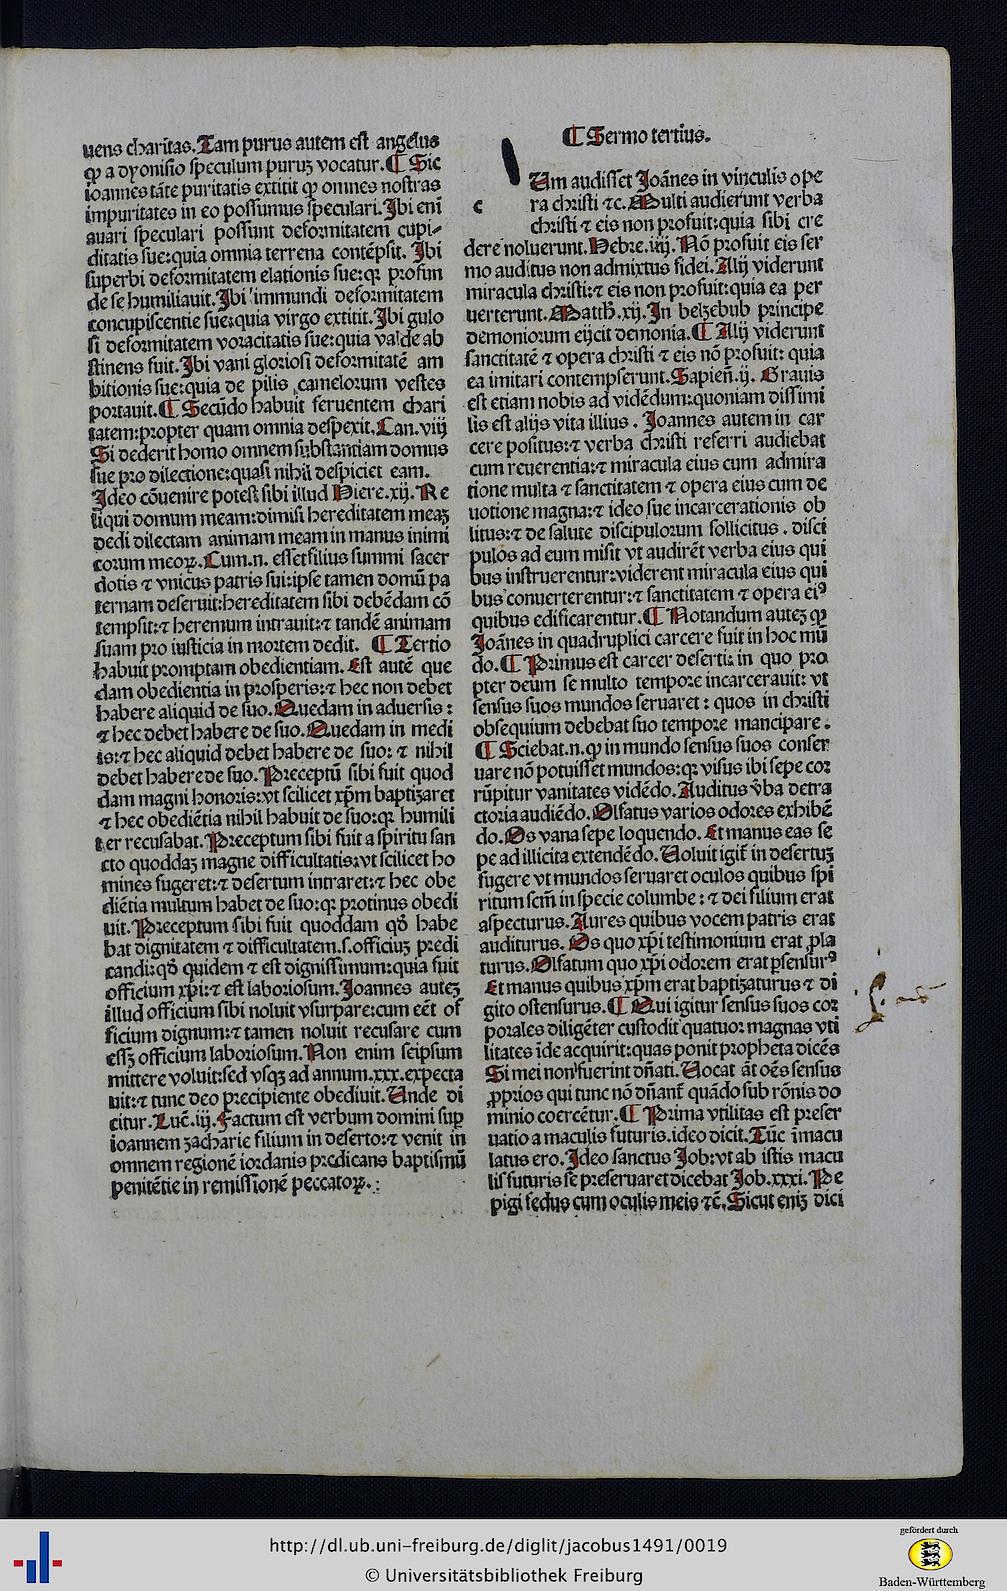 uens charitas. Tam purus autem est angelus
ꝙ a dyonisio speculum puruꝫ vocatur. ¶ Sic
ioannes tāte puritatis extitit ꝙ omnes nostras
impuritates in eo possumus speculari. Ibi enī
auari speculari possunt deformitatem cupi⸗
ditatis sue: quia omnia terrena contēpsit. Ibi
superbi deformitatem elationis sue: qꝛ profun
de se humiliauit. Ibi immundi deformitatem
concupiscentie sue: quia virgo extitit. Ibi gulo
si deformitatem voracitatis sue: quia valde ab
stinens fuit. Ibi vani gloriosi deformitatē am
bitionis sue: quia de pilis camelorum vestes
portauit. ¶ Secūdo habuit feruentem chari
tatem: propter quam omnia despexit. Can. viij
Si dederit homo omnem substantiam domus
sue pro dilectione: quasi nihil despiciet eam.
Ideo cōuenire potest sibi illud Hiere. xij. Re
liqui domum meam: dimisi hereditatem meaꝫ
dedi dilectam animam meam in manus inimi
corum meoꝝ. Cum .n. esset filius summi sacer
dotis ⁊ vnicus patris sui: ipse tamen domū pa
ternam deseruit: hereditatem sibi debēdam cō
tempsit: ⁊ heremum intrauit: ⁊ tandē animam
suam pro iusticia in mortem dedit. ¶ Tertio
habuit promptam obedientiam. Est autē que
dam obedientia in prosperis: ⁊ hec non debet
habere aliquid de suo. Quedam in aduersis:
⁊ hec debet habere de suo. Quedam in medi
is: ⁊ hec aliquid debet habere de suo: ⁊ nihil
debet habere de suo. Preceptū sibi fuit quod
dam magni honoris: vt scilicet xp̄m baptizaret
⁊ hec obediētia nihil habuit de suo: qꝛ humili
ter recusabat. Preceptum sibi fuit a spiritu san
cto quoddaꝫ magne difficultatis: vt scilicet ho
mines fugeret: ⁊ desertum intraret: ⁊ hec obe
diētia multum habet de suo: qꝛ protinus obedi
uit. Preceptum sibi fuit quoddam qđ habe
bat dignitatem ⁊ difficultatem .s. officiuꝫ predi
candi: qđ quidem ⁊ est dignissimum: quia fuit
officium xp̄i: ⁊ est laboriosum. Joannes auteꝫ
illud officium sibi noluit vsurpare: cum eēt of
ficium dignum: ⁊ tamen noluit recusare cum
essꝫ officium laboriosum. Non enim seipsum
mittere voluit: sed vsqꝫ ad annum .xxx. expecta
uit: ⁊ tunc deo precipiente obediuit. Unde di
citur. Luc̄. iij. Factum est verbum domini suꝑ
ioannem zacharie filium in deserto: ⁊ venit in
omnem regionē iordanis predicans baptismū
penitētie in remissionē peccatoꝝ.:
¶ Sermo tertius.
c
Um audisset Joānes in vinculis ope
ra christi ⁊c. Multi audierunt verba
christi ⁊ eis non profuit: quia sibi cre
dere noluerunt. Hebre. iiij. Nō profuit eis ser
mo auditus non admixtus fidei. Alij viderunt
miracula christi: ⁊ eis non profuit: quia ea per
uerterunt. Matth̄. xij. In belzebub principe
demoniorum eijcit demonia. ¶ Alij viderunt
sanctitatē ⁊ opera christi ⁊ eis nō profuit: quia
ea imitari contempserunt. Sapien̄. ij. Grauis
est etiam nobis ad vidēdum: quoniam dissimi
lis est alijs vita illius. Joannes autem in car
cere positus: ⁊ verba christi referri audiebat
cum reuerentia: ⁊ miracula eius cum admira
tione multa ⁊ sanctitatem ⁊ opera eius cum de
uotione magna: ⁊ ideo sue incarcerationis ob
litus: ⁊ de salute discipulorum sollicitus. disci
pulos ad eum misit vt audirēt verba eius qui
bus instruerentur: viderent miracula eius qui
bus conuerterentur: ⁊ sanctitatem ⁊ opera eiꝰ
quibus edificarentur. ¶ Notandum auteꝫ ꝙ
Joānes in quadruplici carcere fuit in hoc mū
do. ¶ Primus est carcer deserti: in quo pro
pter deum se multo tempore incarcerauit: vt
sensus suos mundos seruaret: quos in christi
obsequium debebat suo tempore mancipare.
¶ Sciebat .n. ꝙ in mundo sensus suos conser
uare nō potuisset mundos: qꝛ visus ibi sepe cor
rūpitur vanitates vidēdo. Auditus v̄ba detra
ctoria audiēdo. Olfatus varios odores exhibē
do. Os vana sepe loquendo. Et manus eas se
pe ad illicita extendēdo. Uoluit igit̄ in desertuꝫ
fugere vt mundos seruaret oculos quibus spi
ritum sc̄m in specie columbe: ⁊ dei filium erat
aspecturus. Aures quibus vocem patris erat
auditurus. Os quo xp̄i testimonium erat ꝓla
turus. Olfatum quo xp̄i odorem erat ꝑsensurꝰ
Et manus quibus xp̄m erat baptizaturus ⁊ di
gito ostensurus. ¶ Qui igitur sensus suos cor
porales diligēter custodit quatuor magnas vti
litates īde acquirit: quas ponit propheta dicēs
Si mei non fuerint dn̄ati. Uocat āt oēs sensus
ꝓprios qui tunc nō dn̄ant̄ quādo sub rōnis do
minio coercētur. ¶ Prima vtilitas est preser
uatio a maculis futuris. ideo dicit. Tūc īmacu
latus ero. Ideo sanctus Job: vt ab istis macu
lis futuris se preseruaret dicebat Job. xxxi. Pe
pigi fedus cum oculis meis ⁊c̄. Sicut eniꝫ dici
http://dl.ub.uni-freiburg.de/diglit/jacobus1491/0019
© Universitätsbibliothek Freiburg
gefördert durch
Baden-Württemberg